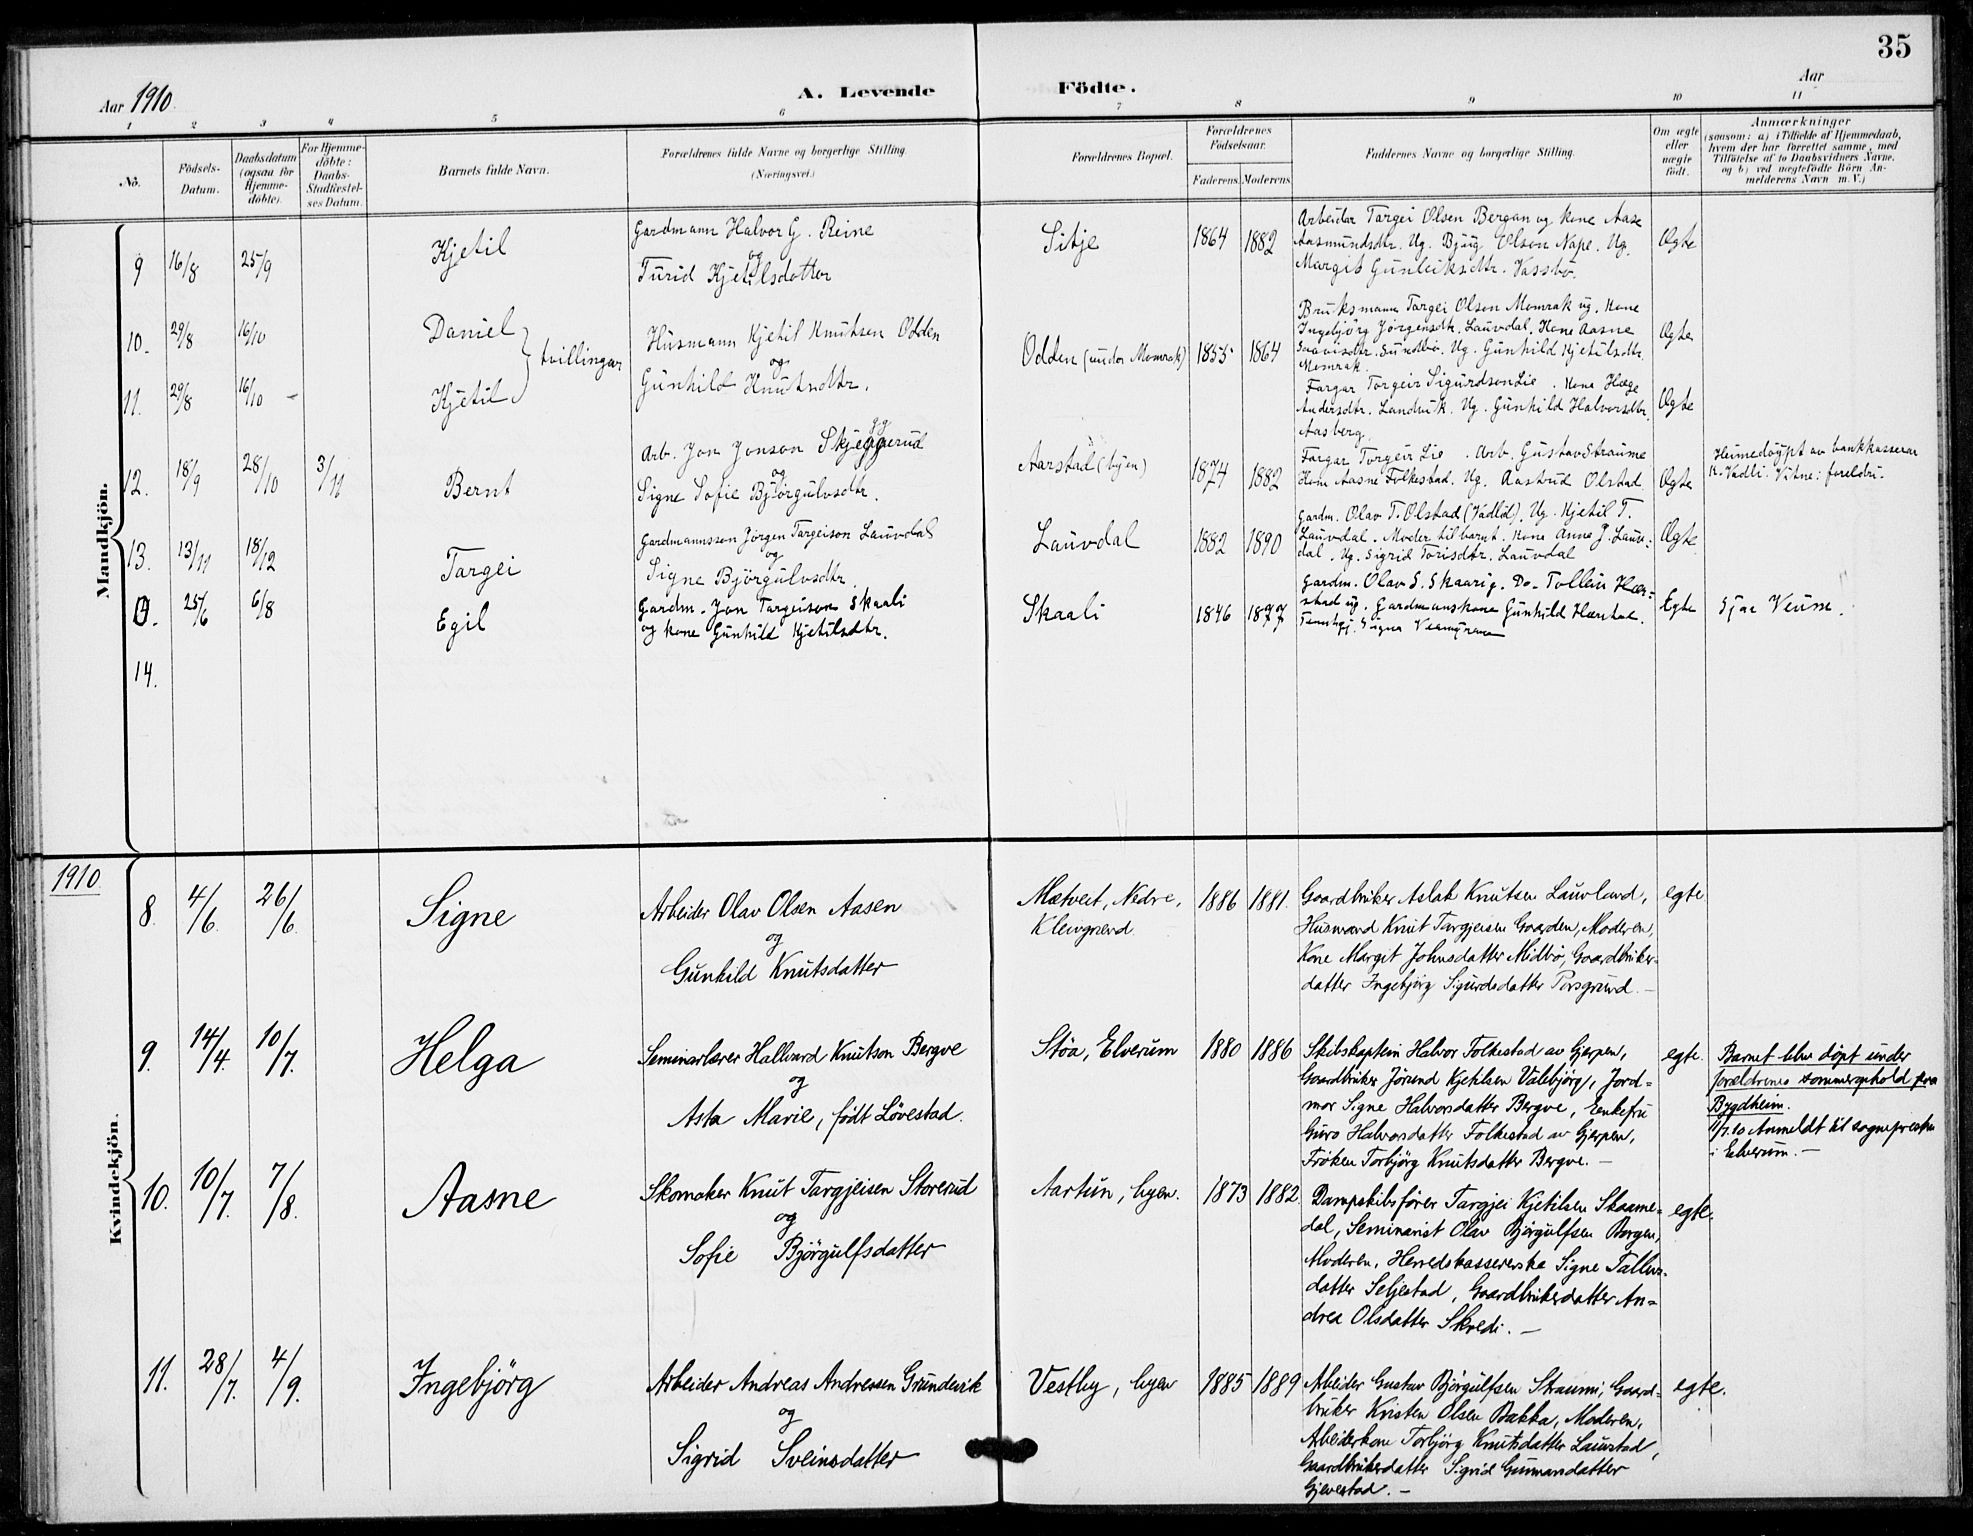 35
Aar 1910.
A. Levende Födte.
Aar
1 2 3 4 5 6 7 8 9 10 11
No.
Födsels-
Datum.
Daabsdatum
(ogsaa for
Hjemme-
döbte).
For Hjemme-
döbte:
Daabs-
Stadfæstel-
ses Datum.
Barnets fulde Navn.
Forældrenes fulde Navne og borgerlige Stilling
(Næringsvei.)
Forældrenes Bopæl.
Forældrenes
Födselsaar.
Faderens. Moderens.
Faddernes Navne og borgerlige Stilling.
Om ægte
eller
uægte
födt.
Anmærkninger
(saasom: a) i Tilfælde af Hjemmedaab,
hvem der har forrettet samme, med
Tilföielse af to Daabsvidners Navne,
og b) ved uægtefödte Börn An-
melderens Navn m. V.)
Mandkjön.
9 16/8 25/9
Kjetil
Gardmann Halvor G. Reine
og
Turid Kjetilsdotter
Sitje
1864 1882
Arbeidar Targei Olsen Bergan og kone Aase
Aasmundsdtr. Ug. Bjug Olson Nape. Ug.
Margit Gunleiksdtr. Vassbø.
Ægte
10. 29/8 16/10
Daniel
tvillingar
Husmann Kjetil Knutsen Odden
og
Gunhild Knutsdtr.
Odden (under Momrak)
1855 1864
Bruksmann Targei Olson Momrak og kone
Ingebjörg Jörgensdtr. Lauvdal. Kone Aasne
Sundbö. Ug. Gunhild Kjetilsdtr.
Momrak.
Ægte
11. 29/8 16/10 –
Kjetil
Fargar Torgeir Sigurdson Lie. Kona Hæge
Andersdtr. Landvik. Ug. Gunhild Halvorsdtr.
Aasberg.
Ægte
12. 18/9 28/10 3/11
Bernt
Arb. Jon Jonson Skjeggerud
og
Signe Sofie Bjørgulvsdtr.
Aarstad (byen)
1874 1882
Fargar Torgeir Lie. Arb. Gustav Straume
Kone Aasne Folkestad. Ug. Aastrud Olstad
Ægte
Heimedöypt av bankkasserar
K. Vadli. Vitne: foreldri.
13. 13/11 18/12
Targei
Gardmannsson Jörgen Targeison Lauvdal
og
Signe Björgulvsdtr.
Lauvdal
1882 1890
Gardm. Olav T. Olstad (Vadlid). Ug. Kjetil T.
Lauvdal. Moder til barnet. Kone Anne J. Lauv-
dal. Ug. Sigrid Torisdtr. Lauvdal
Ægte
25/6 6/8
Egil
Gardm. Jon Targeison Skaali
og kone Gunhild Kjetilsdtr.
Skaali
1846 1877
Gardm. Olav S. Skaari. Do. Tollein Hær-
stad og Gardmannskone Gunhild Hærstad.
Egte
Sjaa Veum.
14.
1910.
Kvindekjön.
8. 4/6. 26/6.
Signe
Arbeider Olav Olsen Aasen
og
Gunhild Knutsdatter
Mætveit, Nedre,
Kleivgrend
1886 1881.
Gaardbruker Aslak Knutsen Lauvland,
Husmand Knut Targjeisen Gaarden, Moderen,
Kone Margit Johnsdatter Midbö, Gaardbruker-
datter Ingebjörg Sigurdsdatter Porsgrund. –
egte
9. 14/4. 10/7.
Helga
Seminarlærer Hallvard Knutson Bergve
og
Asta Marie, født Lövestad.
Støa, Elverum
1880 1886
Skibskaptein Halvor Folkestad av Gjerpen,
Gaardbruker Jörund Kjetilsen Valebjörg, Jord-
mor Signe Halvorsdatter Bergve, Enkefru
Guro Halvorsdatter Folkestad av Gjerpen,
Frøken Torbjörg Knutsdatter Bergve. –
egte.
Barnet blev döpt under
forældrenes sommerophold paa
Bygdheim.
11/7.10 Anmeldt til sognepresten
i Elverum. –
10. 10/7. 7/8.
Aasne
Skomaker Knut Targjeisen Storerud
og
Sofie Björgulfsdatter
Aartun, byen.
1873 1882
Dampskibsfører Targjei Kjetilsen Skaame-
dal, Seminarist Olav Björgulfsen Borgen,
Moderen, Herredskassererska Signe Talleivs-
datter Seljestad, Gaardbrukerdatter An-
drea Olsdatter Skredi. –
egte.
11. 28/7. 4/9.
Ingebjörg
Arbeider Andreas Andresen Grundevik
og
Sigrid Sveinsdatter
Vestby, byen
1885 1889
Arbeider Gustav Björgulfsen Straumi, Gaard-
bruker Kristen Olsen Bakka, Moderen,
Arbeiderkone Torbjörg Knutsdatter Laustad,
Gaardbrukerdatter Sigrid Gunnarsdatter
Gjevestad. –
egte.